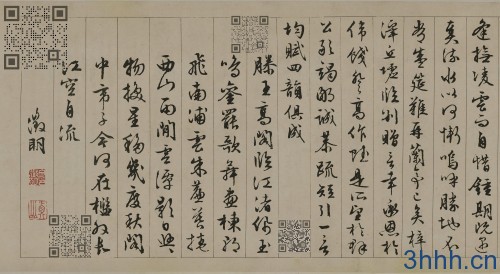 逢撫凌雲而自惜鍾期既遇
奏流水以何慚嗚呼勝地不
常盛筵難再蘭亭已矣梓
澤丘墟臨別贈言幸承恩於
偉餞登高作賦是所望於群
公敢竭鄙誠恭疏短引一言
均賦四韻俱成
滕王高閣臨江渚佩玉
鳴鸞罷歌舞畫棟朝
飛南浦雲朱簾暮捲
西山雨閒雲潭影日悠悠
物換星移幾度秋閣
中帝子今何在檻外長
江空自流
徵明
3hhh.cn